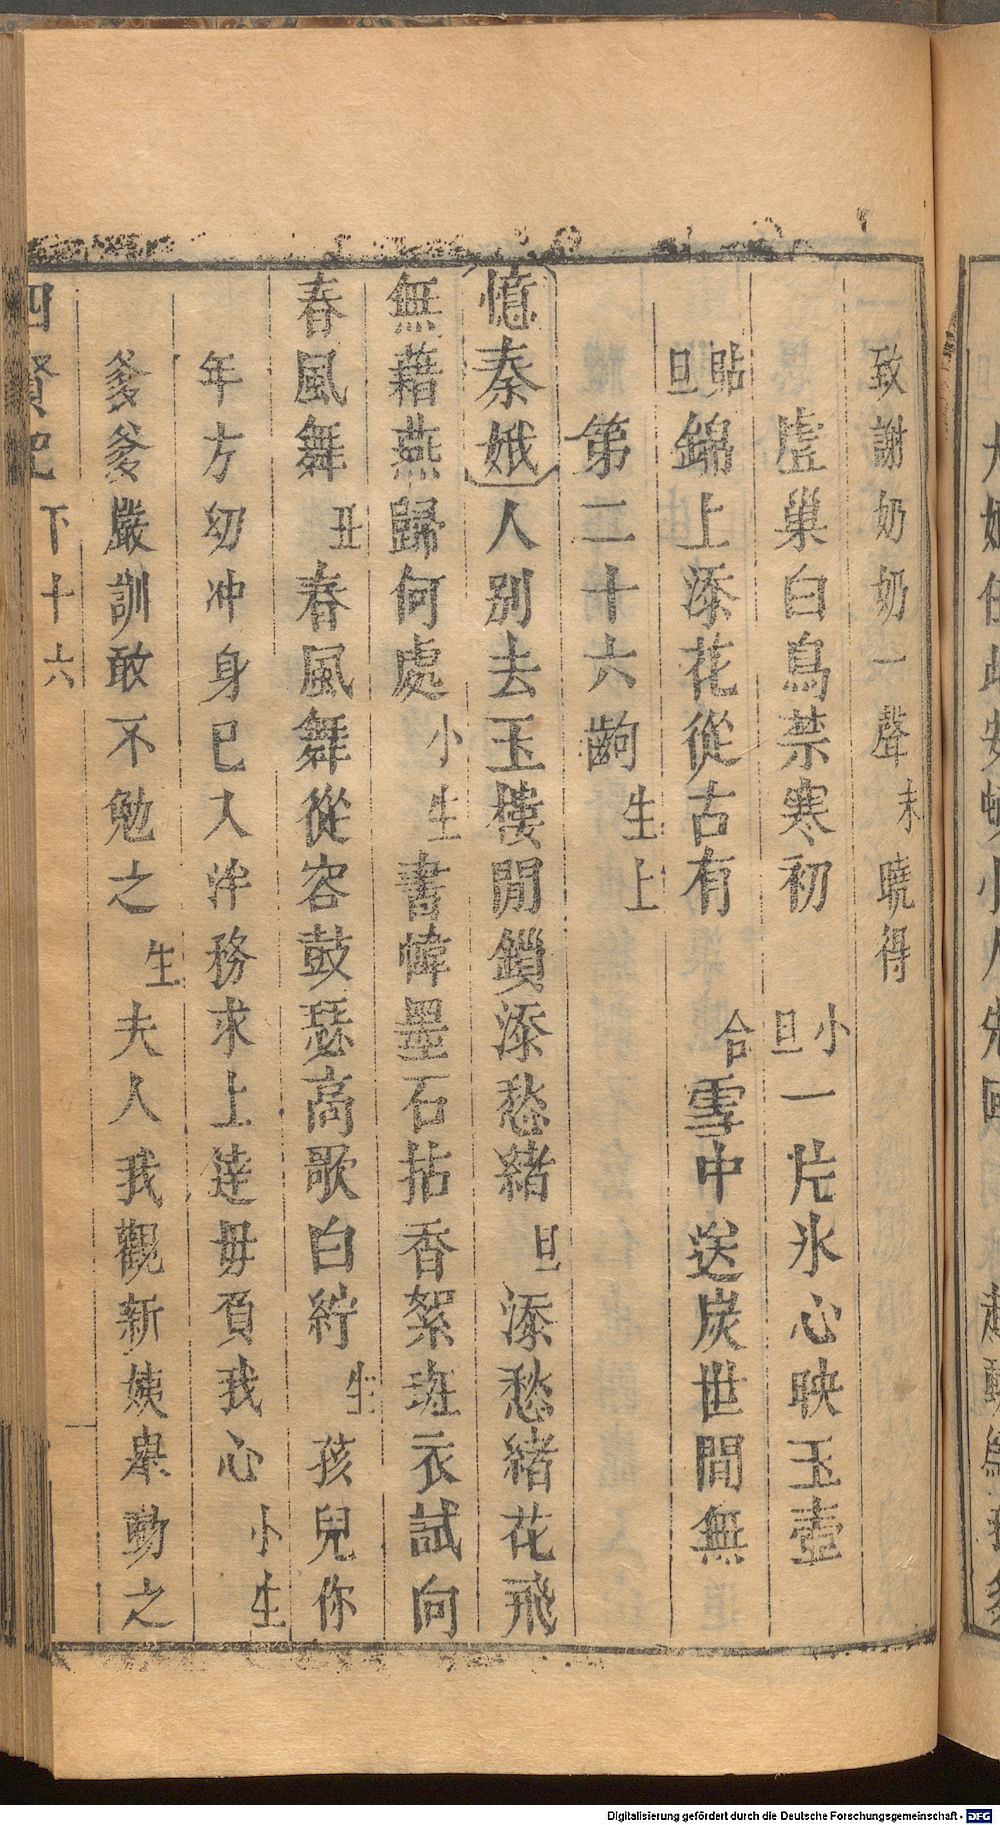 致謝奶奶一聲末曉得
虗巢白鳥禁寒初 小旦一片氷心映玉壺
貼旦錦上添花從古有 合雪中送炭世間無
第二十六齣 生上
憶秦娥人別去玉樓閒鎖添愁緒旦添愁緒花飛
無藉燕歸何處小生書幃墨石拈香絮斑衣試向
春風舞丑春風舞從容鼓瑟高歌白紵生孩兒你
年方幼冲身已入泮務求上達毋負我心小生
爹爹嚴訓敢不勉之生夫人我觀新姨舉動之
四賢記 下 十六
Digitalisierung gefördert durch die Deutsche Forschungsgemeinschaft - DFG